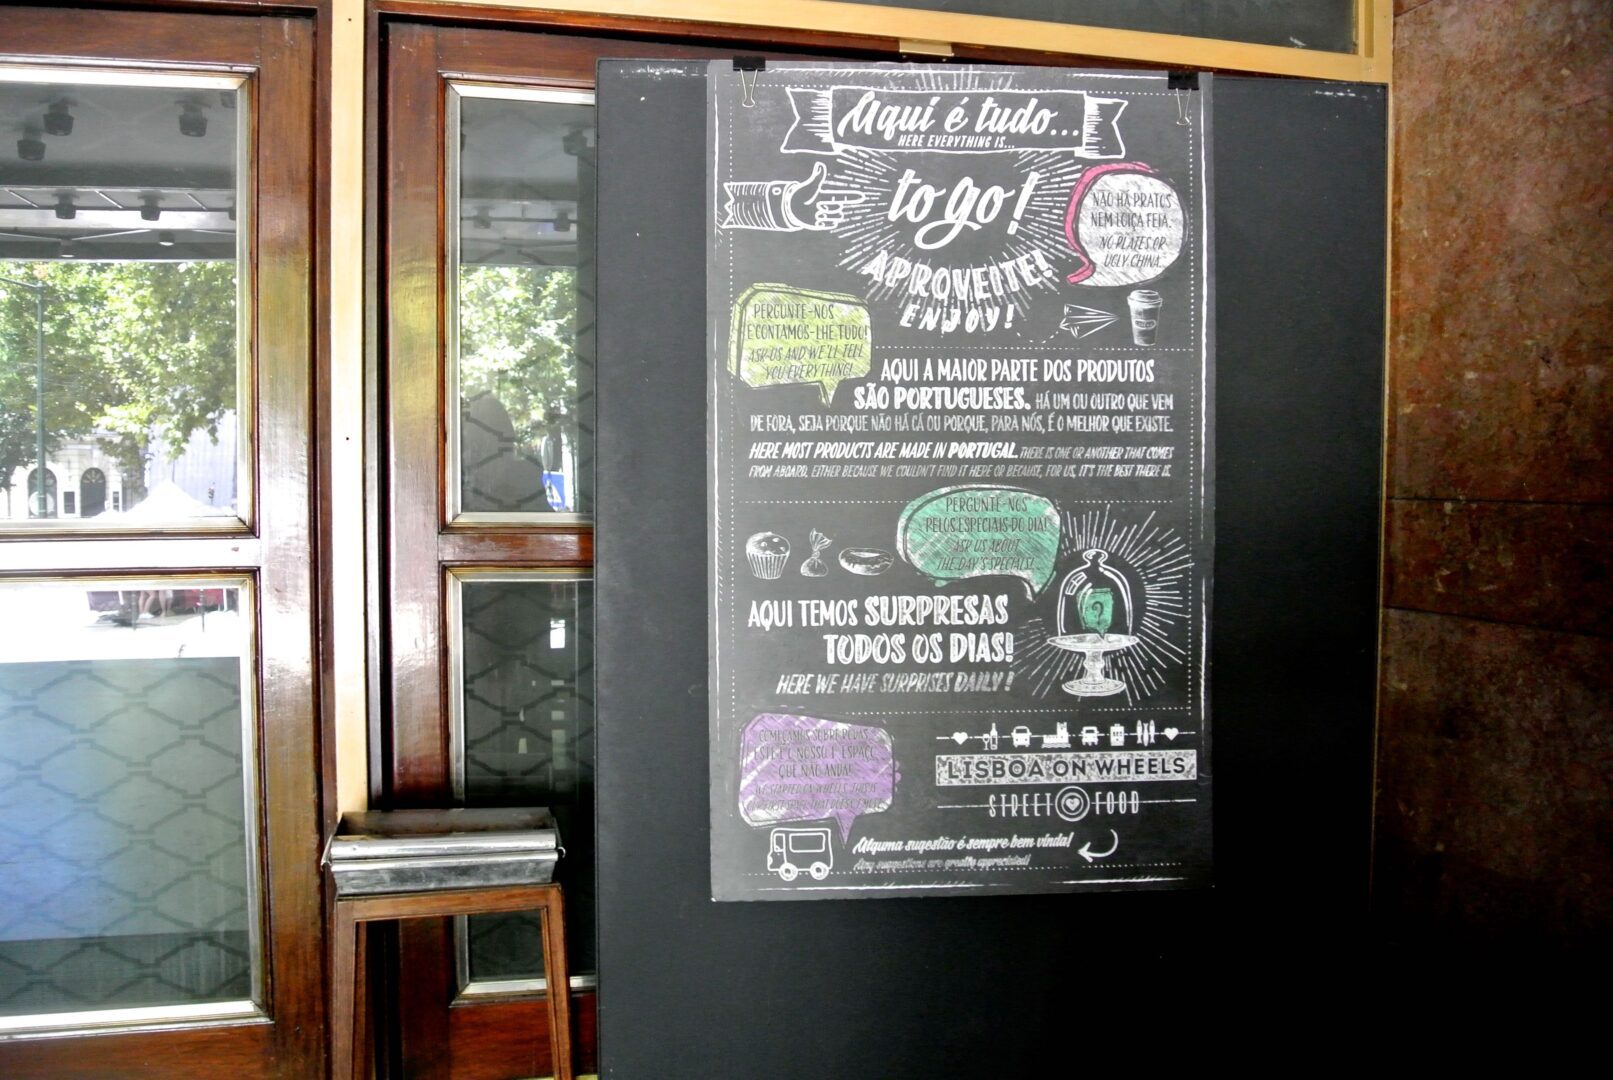 Aqui é tudo...
HERE EVERYTHING IS...
to go!
NÃO HÁ PRATOS
NEM LOIÇA FEIA.
NO PLATES OR
UGLY CHINA.
APROVEITE!
ENJOY!
PERGUNTE-NOS
E CONTAMOS-LHE TUDO!
ASK US AND WE'LL TELL
YOU EVERYTHING!
AQUI A MAIOR PARTE DOS PRODUTOS
SÃO PORTUGUESES. HÁ UM OU OUTRO QUE VEM
DE FORA, SEJA PORQUE NÃO HÁ CÁ OU PORQUE, PARA NÓS, É O MELHOR QUE EXISTE.
HERE MOST PRODUCTS ARE MADE IN PORTUGAL. THERE IS ONE OR ANOTHER THAT COMES
FROM ABOARD, EITHER BECAUSE WE COULDN'T FIND IT HERE OR BECAUSE, FOR US, IT'S THE BEST THERE IS.
PERGUNTE-NOS
PELOS ESPECIAIS DO DIA!
ASK US ABOUT
THE DAY'S SPECIALS!
?
AQUI TEMOS SURPRESAS
TODOS OS DIAS!
HERE WE HAVE SURPRISES DAILY!
COMEÇAMOS SOBRE RODAS.
ESTE É O NOSSO 1º ESPAÇO
QUE NÃO ANDA!
WE STARTED ON WHEELS. THIS IS
OUR FIRST SPACE THAT DOESN'T MOVE
LISBOA ON WHEELS
STREET FOOD
Alguma sugestão é sempre bem vinda!
Any suggestions are greatly appreciated!